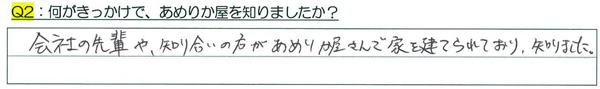 Q2：何がきっかけで、あめりか屋を知りましたか？
会社の先輩や、知り合いの方があめりか屋さんで家を建てられており、知りました。